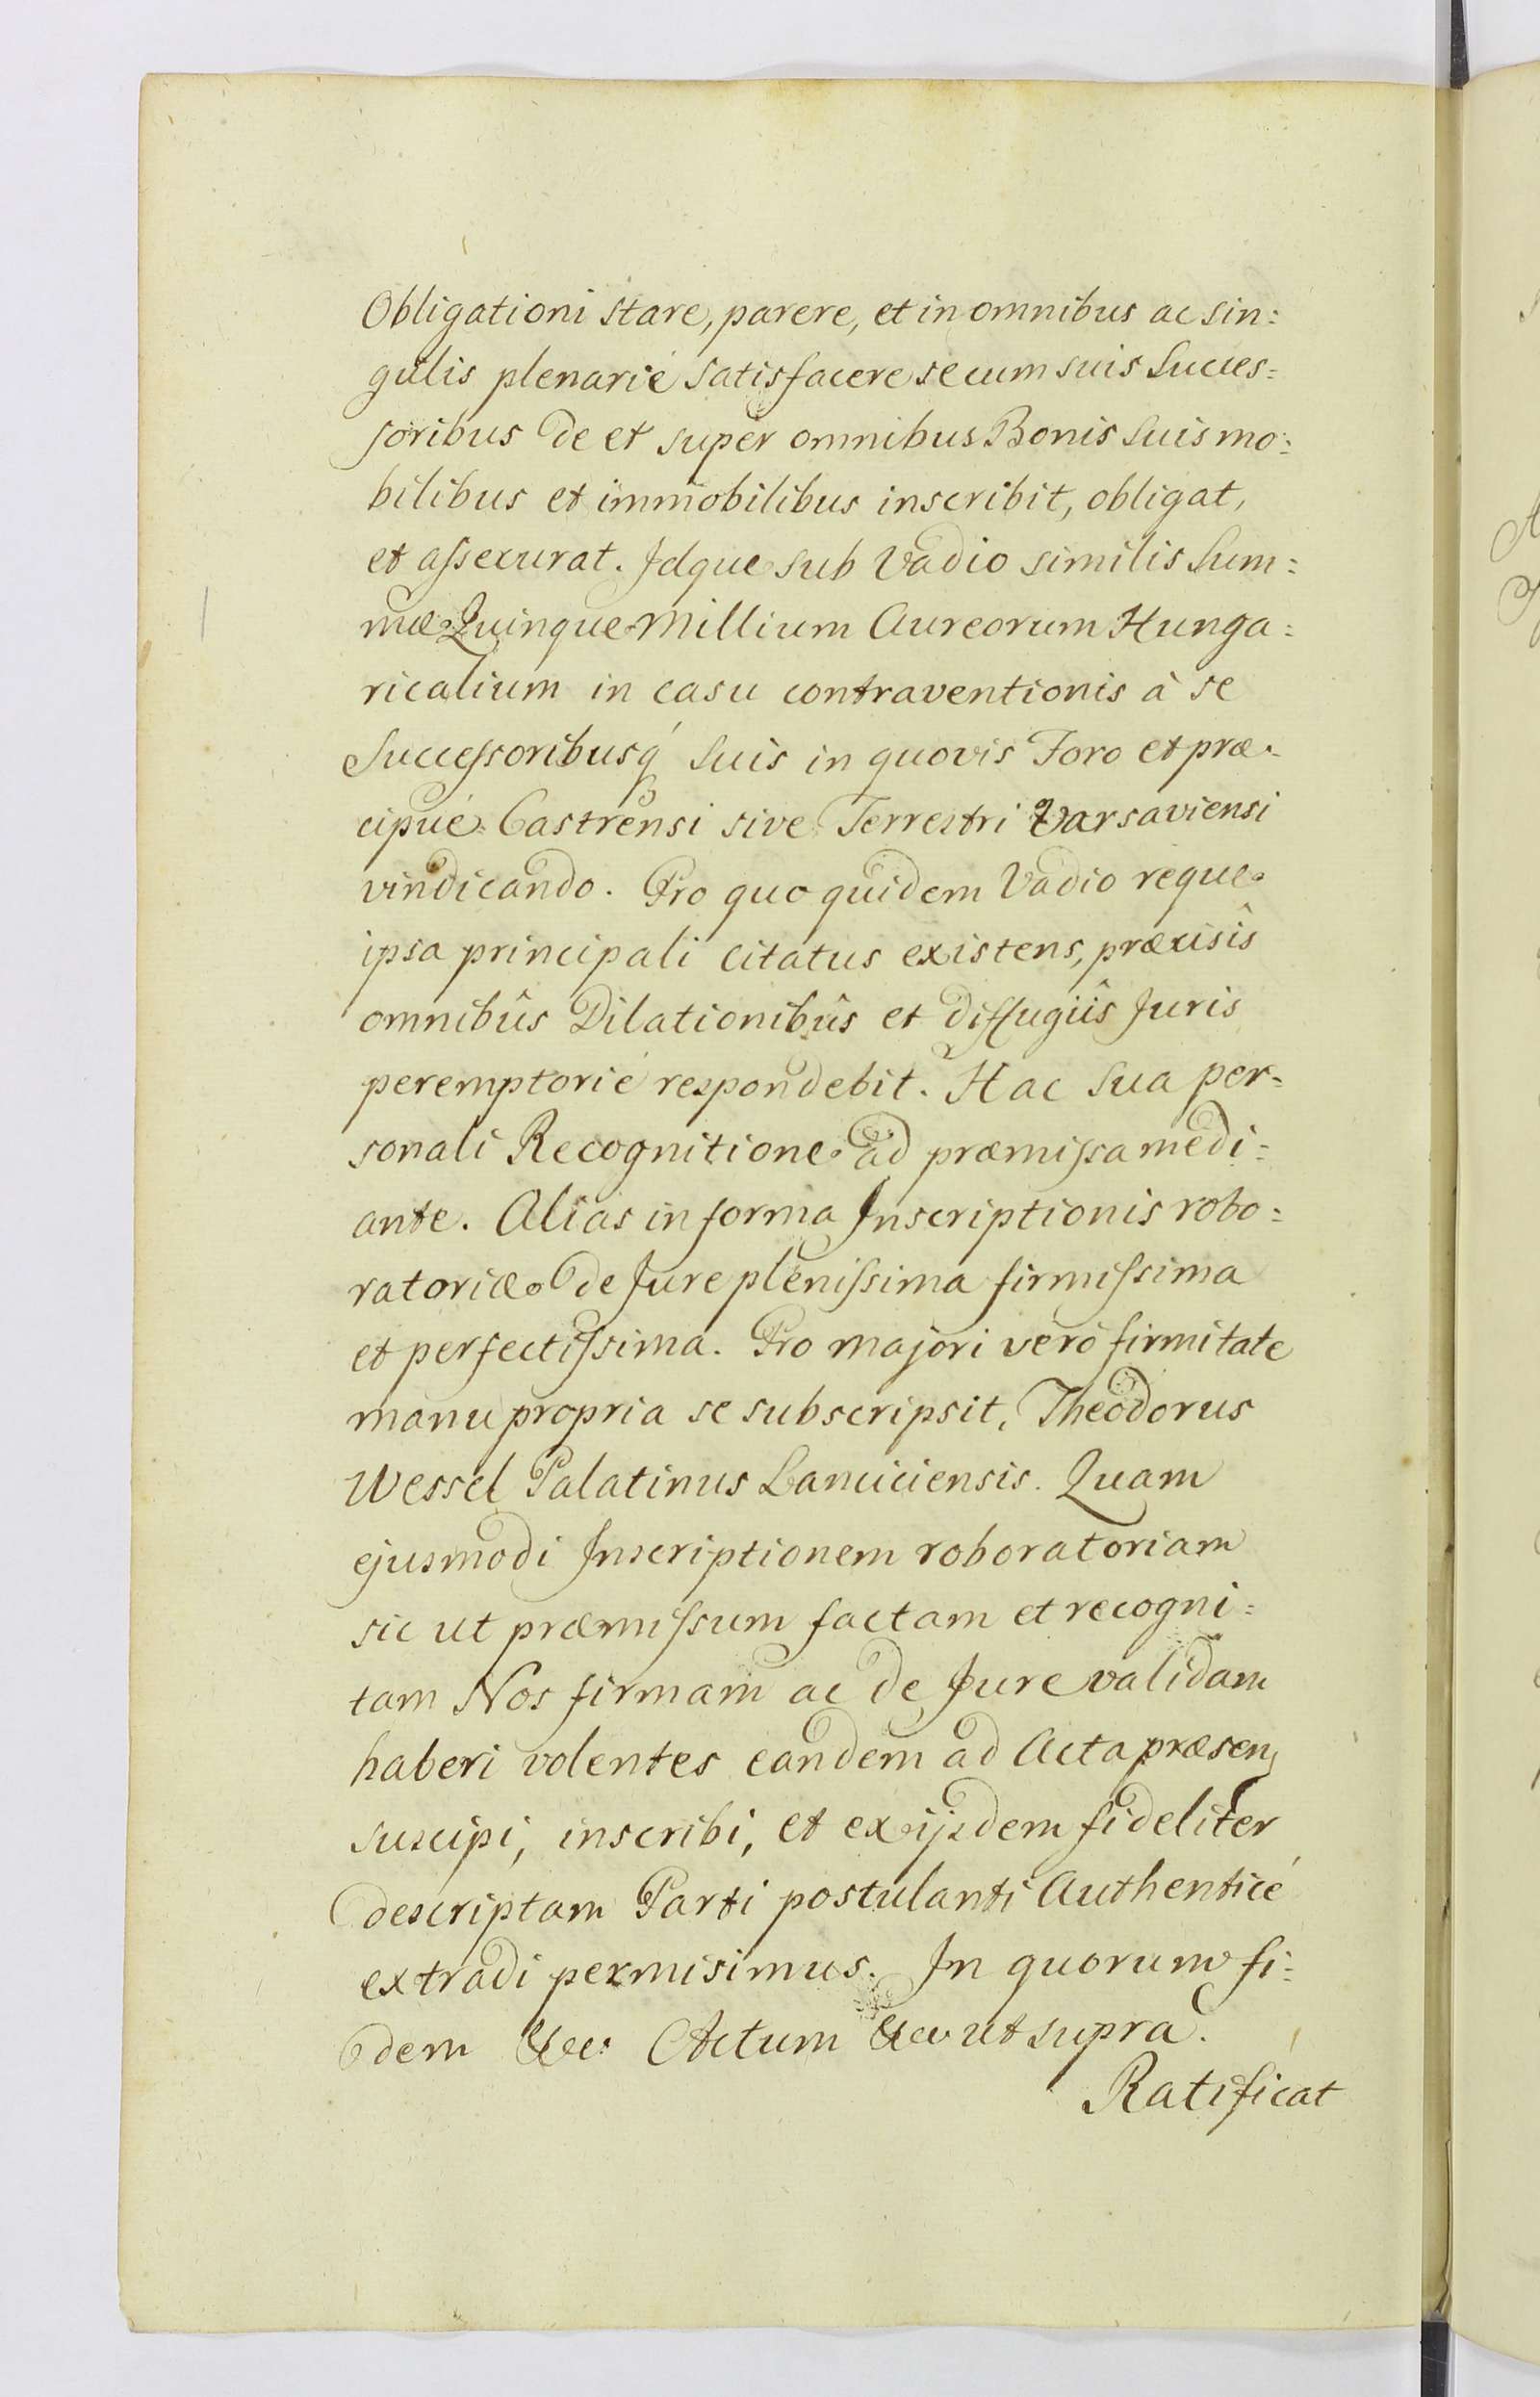 Obligationi stare, parere, et in omnibus ac sin:
gulis plenarié satisfacere se cum suis Succes:
soribus de et super omnibus Bonis suis mo:
bilibus et immobilibus inscribit, obligat,
et aſsecurat. Jdque sub Vadio similis Sum:
mæ Quinque Millium Aureorum Hunga:
ricalium in casu contraventionis à se
Succeſsoribusq́ suis in quovis Foro et præ:
cipué Castrensi sive Terrestri Varsaviensi
vindicando. Pro quo quidem Vadio reque
ipsa principali citatus existens, præcisîs
omnibûs Dilationibûs et diffugiîs Juris
peremptorié respondebit. Hac sua per:
sonali Recognitione ad præmiſsa medi:
ante. Alias in forma Inscriptionis robo:
ratoriæ de Jure pleniſsima firmiſsima
et perfectiſsima. Pro majori veró firmitate
manu propria se subscripsit, Theodorus
Wessel Palatinus Lanciciensis. Quam
ejusmodi Inscriptionem roboratoriam
sic ut præmiſsum factam et recogni:
tam Nos firmam ac de Jure validam
haberi volentes eandem ad Acta præsen
suscipi, inscribi, et ex ijsdem fideliter
descriptam Parti postulanti Authenticé
extradi permisimus. In quorum fi:
dem &c: Actum &c ut supra.
Ratificat